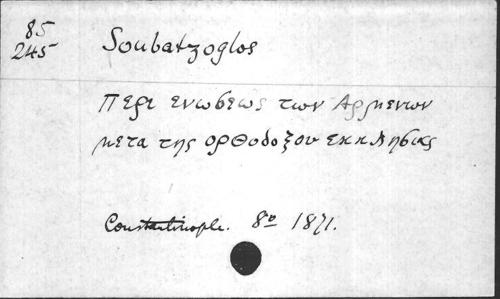 85
245
Soubatzoglos
Περι ενωσεως των Αρμενων
μετα της ορθοδοξου εκκλησιας
Constantinople. 8º 1871.